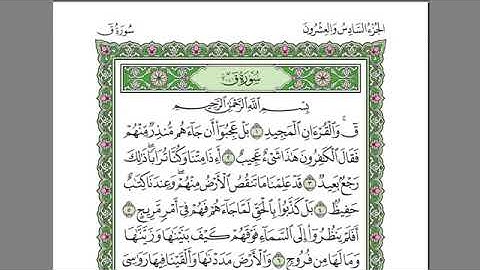 الجزء السادس والعشرون
سورة ق
سورة ق
بسم الله الرحمن الرحيم
ق والقرءان المجيد ١ بل عجبوا أن جاءهم منذر منهم
فقال الكفرون هذا شيء عجيب ٢ أءذا متنا وكنا ترابا ذلك
رجع بعيد ٣ قد علمنا ما تنقص الأرض منهم وعندنا كتب
حفيظ ٤ بل كذبوا بالحق لما جاءهم فهم في أمر مريج ٥
أفلم ينظروا إلى السماء فوقهم كيف بنينها وزينها
وما لها من فروج ٦ والأرض مددنها وألقينا فيها روسي